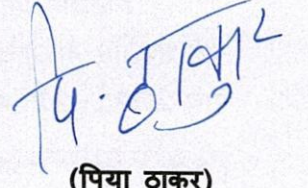 पि. ठाकुर
(पिया ठाकर)